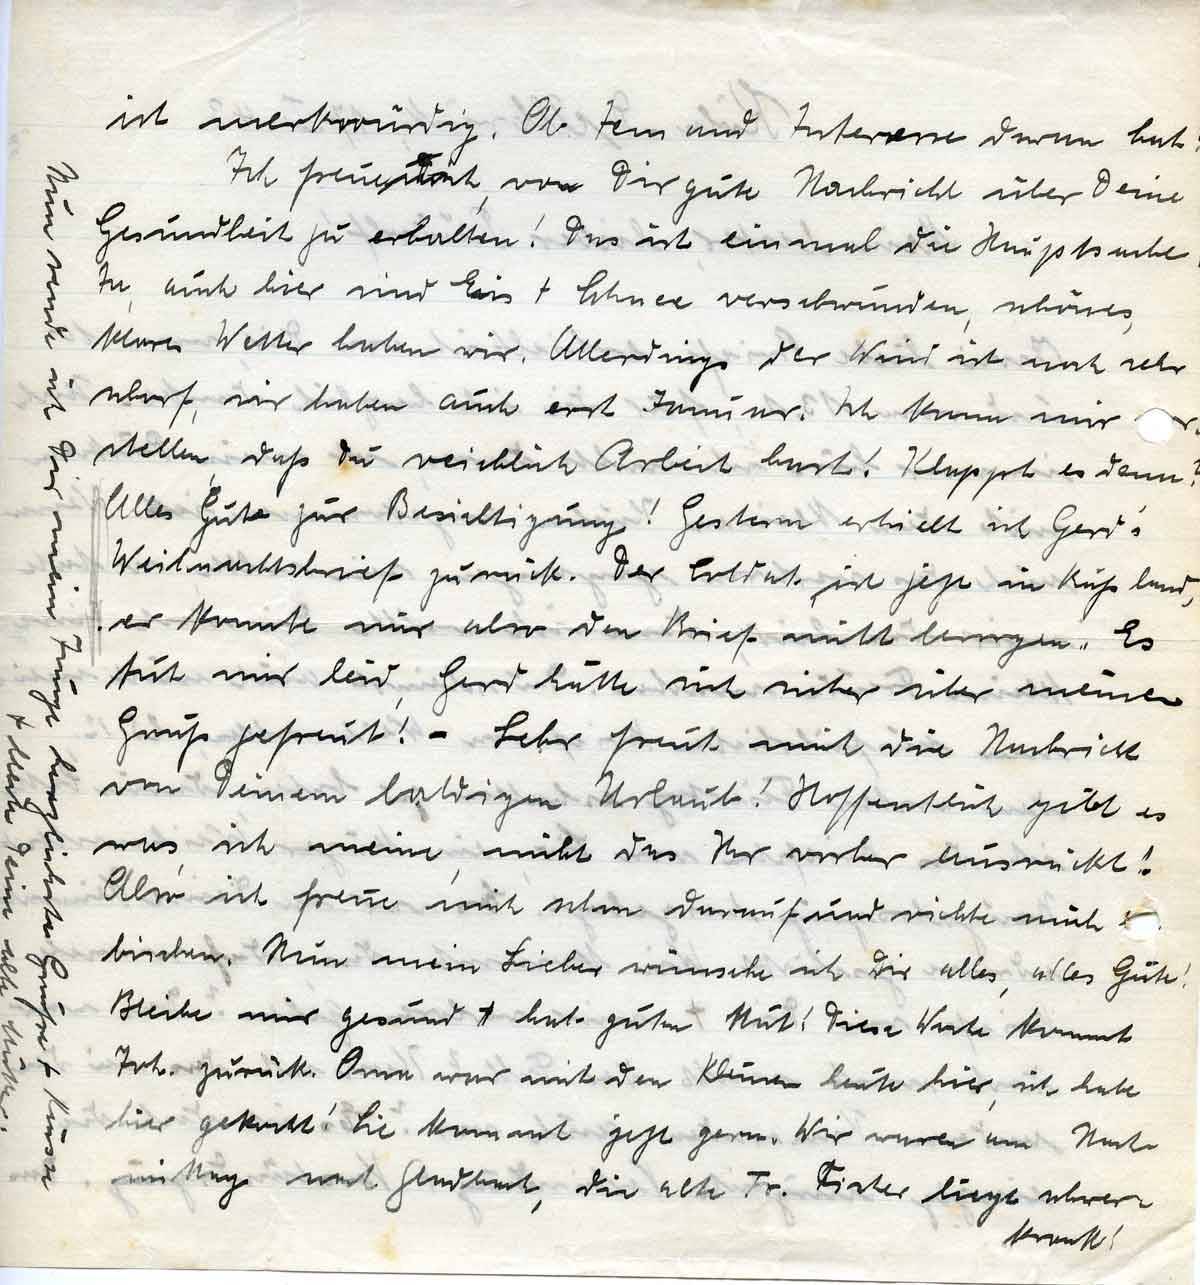 ist merkwürdig. Ob Jemand Interesse daran hat?
Ich freue mich, von Dir gute Nachricht über Deine
Gesundheit zu erhalten! Das ist einmal die Hauptsache!
Ja, auch hier sind Eis + Schnee verschwunden, schönes,
klares Wetter haben wir. Allerdings der Wind ist noch sehr
scharf, wir haben auch erst Januar. Ich kann mir vor-
stellen, daß Du reichlich Arbeit hast! Klappt es denn?
Alles Gute zur Besichtigung! Gestern erhielt ich Gerd's
Weihnachtsbrief zurück. Der Soldat ist jetzt in Rußland,
er konnte nur also den Brief nicht besorgen. Es
tut mir leid, Gerd hätte sich sicher über meinen
Gruß gefreut! - Sehr freut mich die Nachricht
von Deinem baldigen Urlaub! Hoffentlich gibt es
was, ich meine, nicht das Ihr vorher ausrückt!
Also ich freue mich schon darauf und richte mich
bischen. Nun mein Lieber wünsche ich Dir alles, alles Gute!
Bleibe mir gesund + hab guten Mut! Diese Woche kommt
Joh. zurück. Oma war mit den Kleinen heute hier, ich habe
hier gekocht! Sie kommt jetzt gern. Wir waren am Nach-
mittag nach Gladbach, die alte Fr. liegt schwer
krank!
Nun sende ich Dir mein Junge herzlichste Grüße + Küsse
+ bleibe Deine alte Mutter.